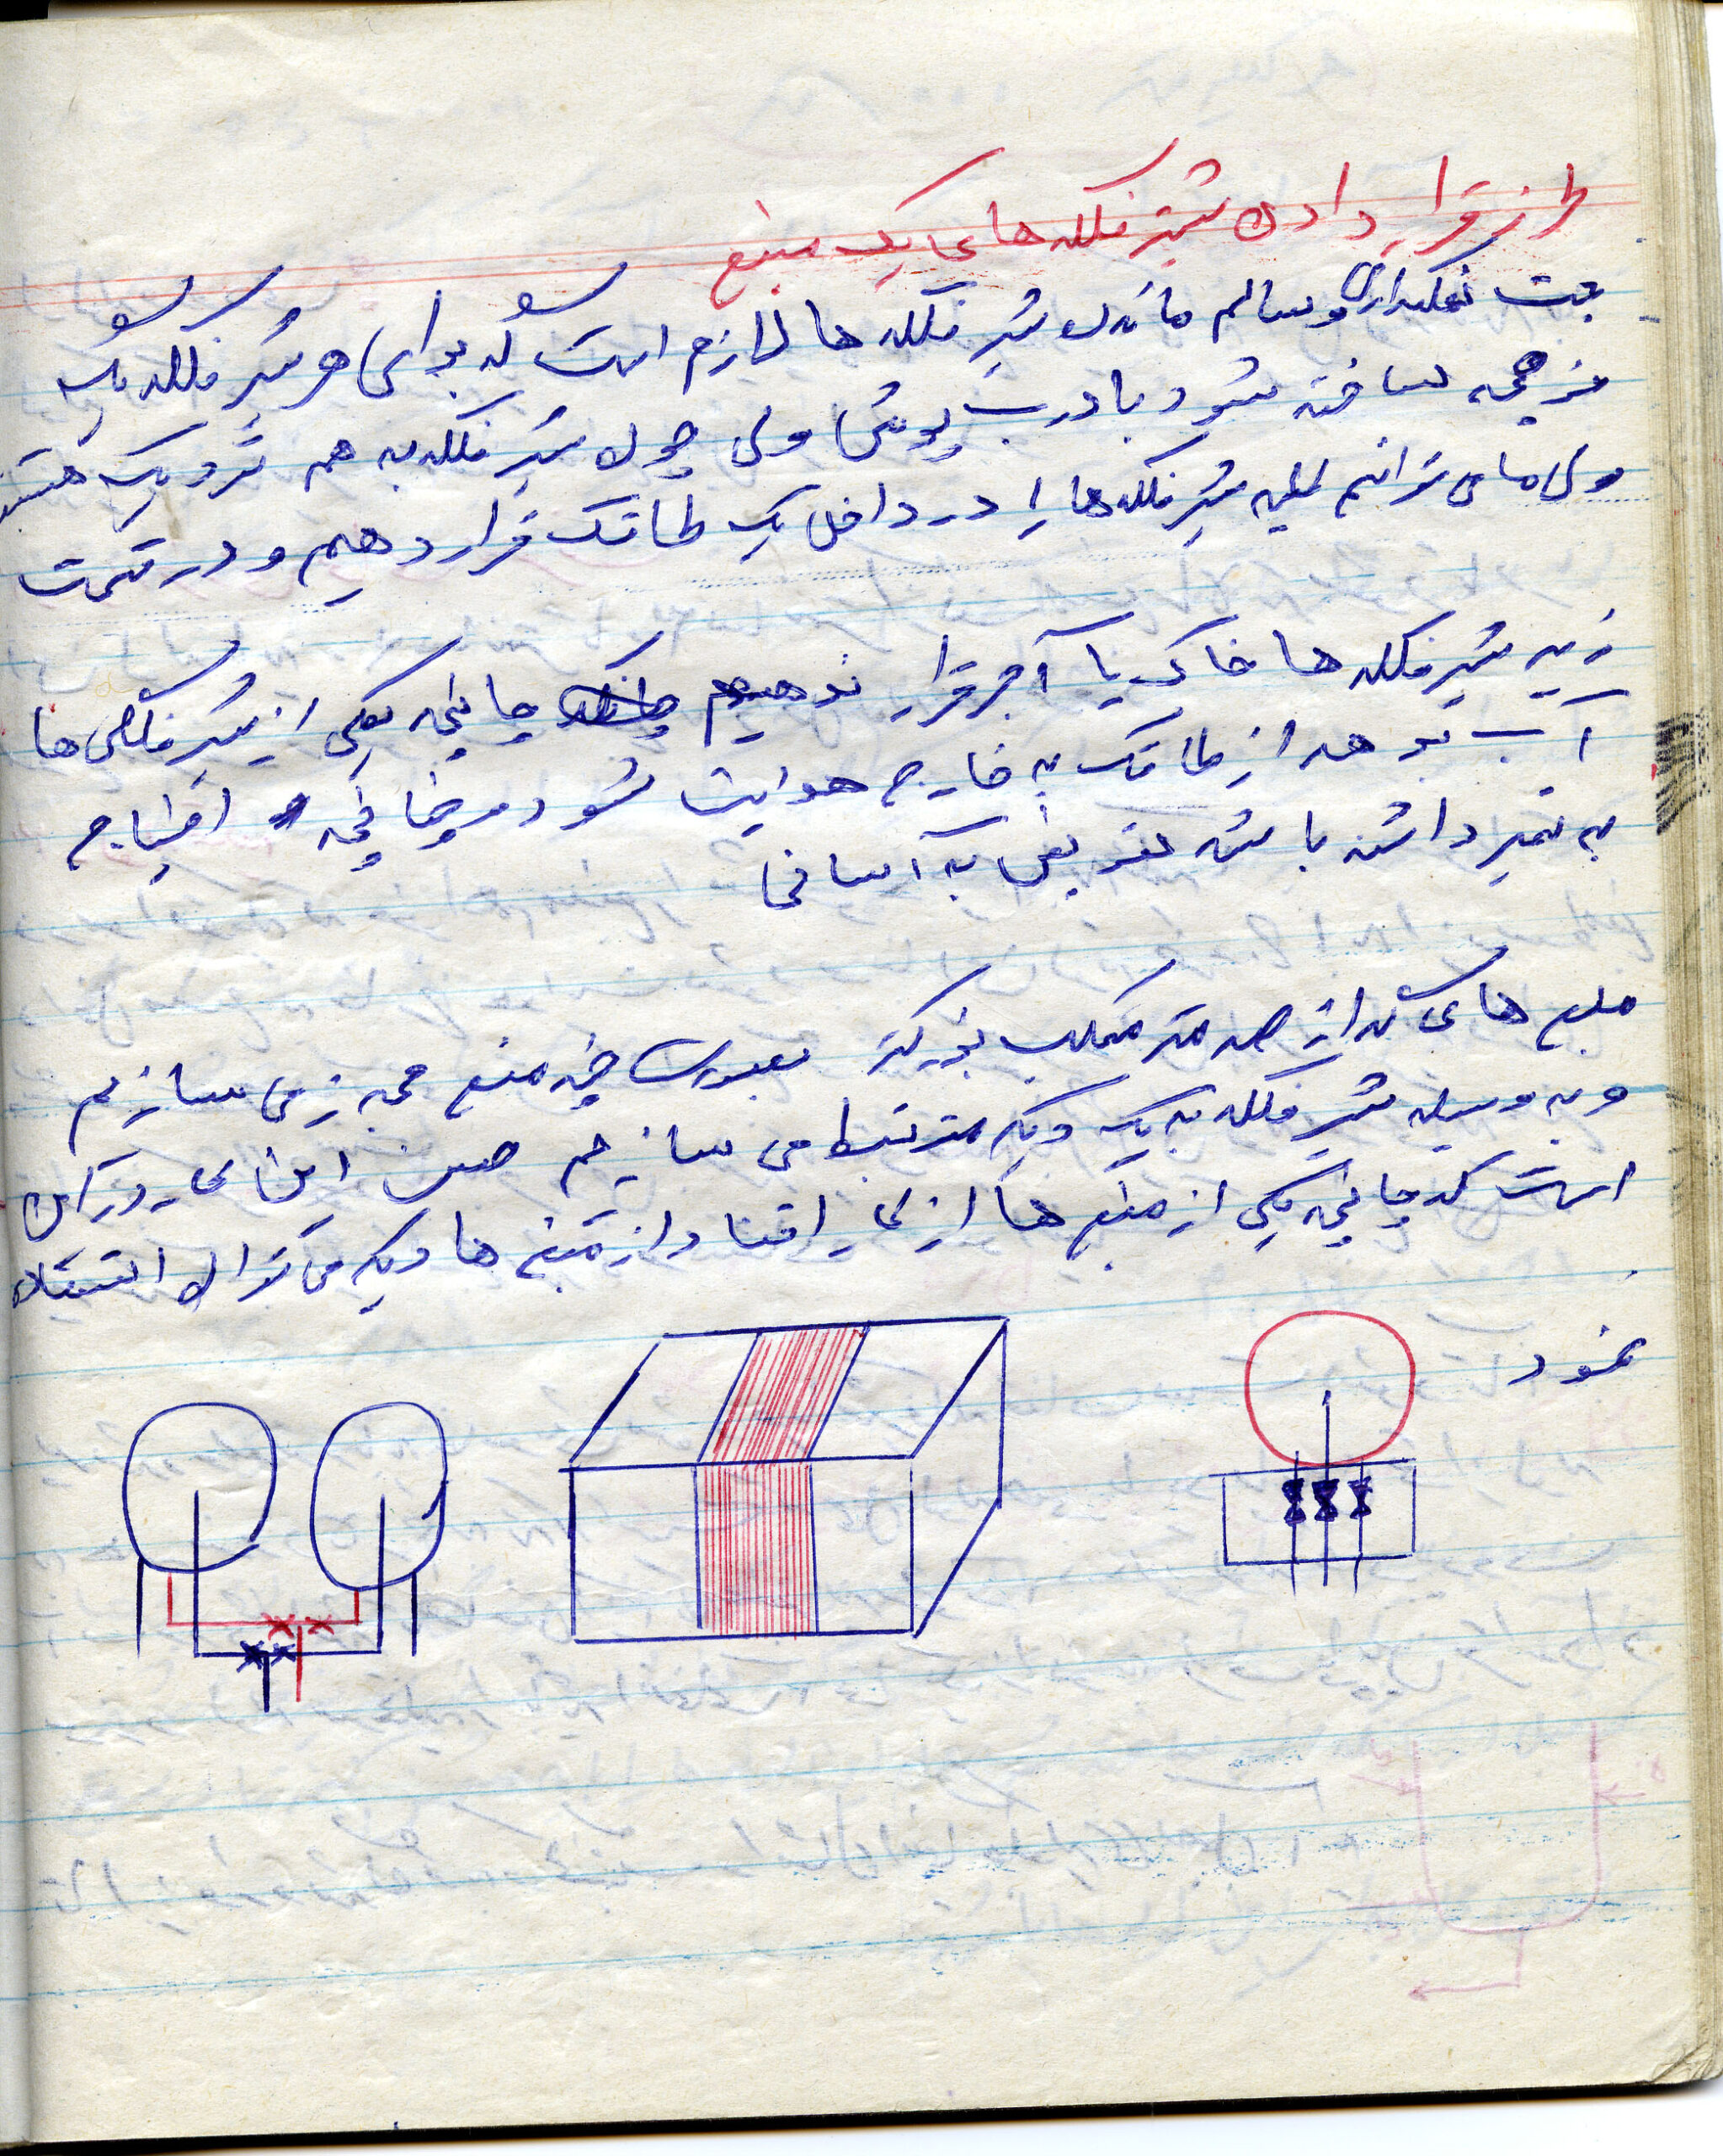 طرز قرار دادن شیر فلکه های یک منبع
جهت نگهداری و سالم ماندن شیر فلکه ها لازم است که برای هر شیر فلکه یک
ساخته شود با درب پوش ولی چون شیر فلکه به هم نزدیک هستند
ولی ما می توانیم کلیه شیر فلکه ها را در داخل یک طاقک قرار دهیم و در قسمت
زیر شیر فلکه ها خاک یا آجر قرار ندهیم چنانچه یکی از شیر فلکه ها
آب بدهد از طاقک به خارج هدایت شود و چنانچه احتیاج
به تعمیر داشته باشد تعویض به آسانی
منبع های که از صد متر مکعب بزرگتر بصورت چند منبع مجزی می سازیم
و به وسیله شیر فلکه به یک دیگر مرتبط می سازیم حسن این کار در آن
است که چنانچه یکی از منبع ها از کار افتاد از منبع ها دیگر می توان استفاده
نمود